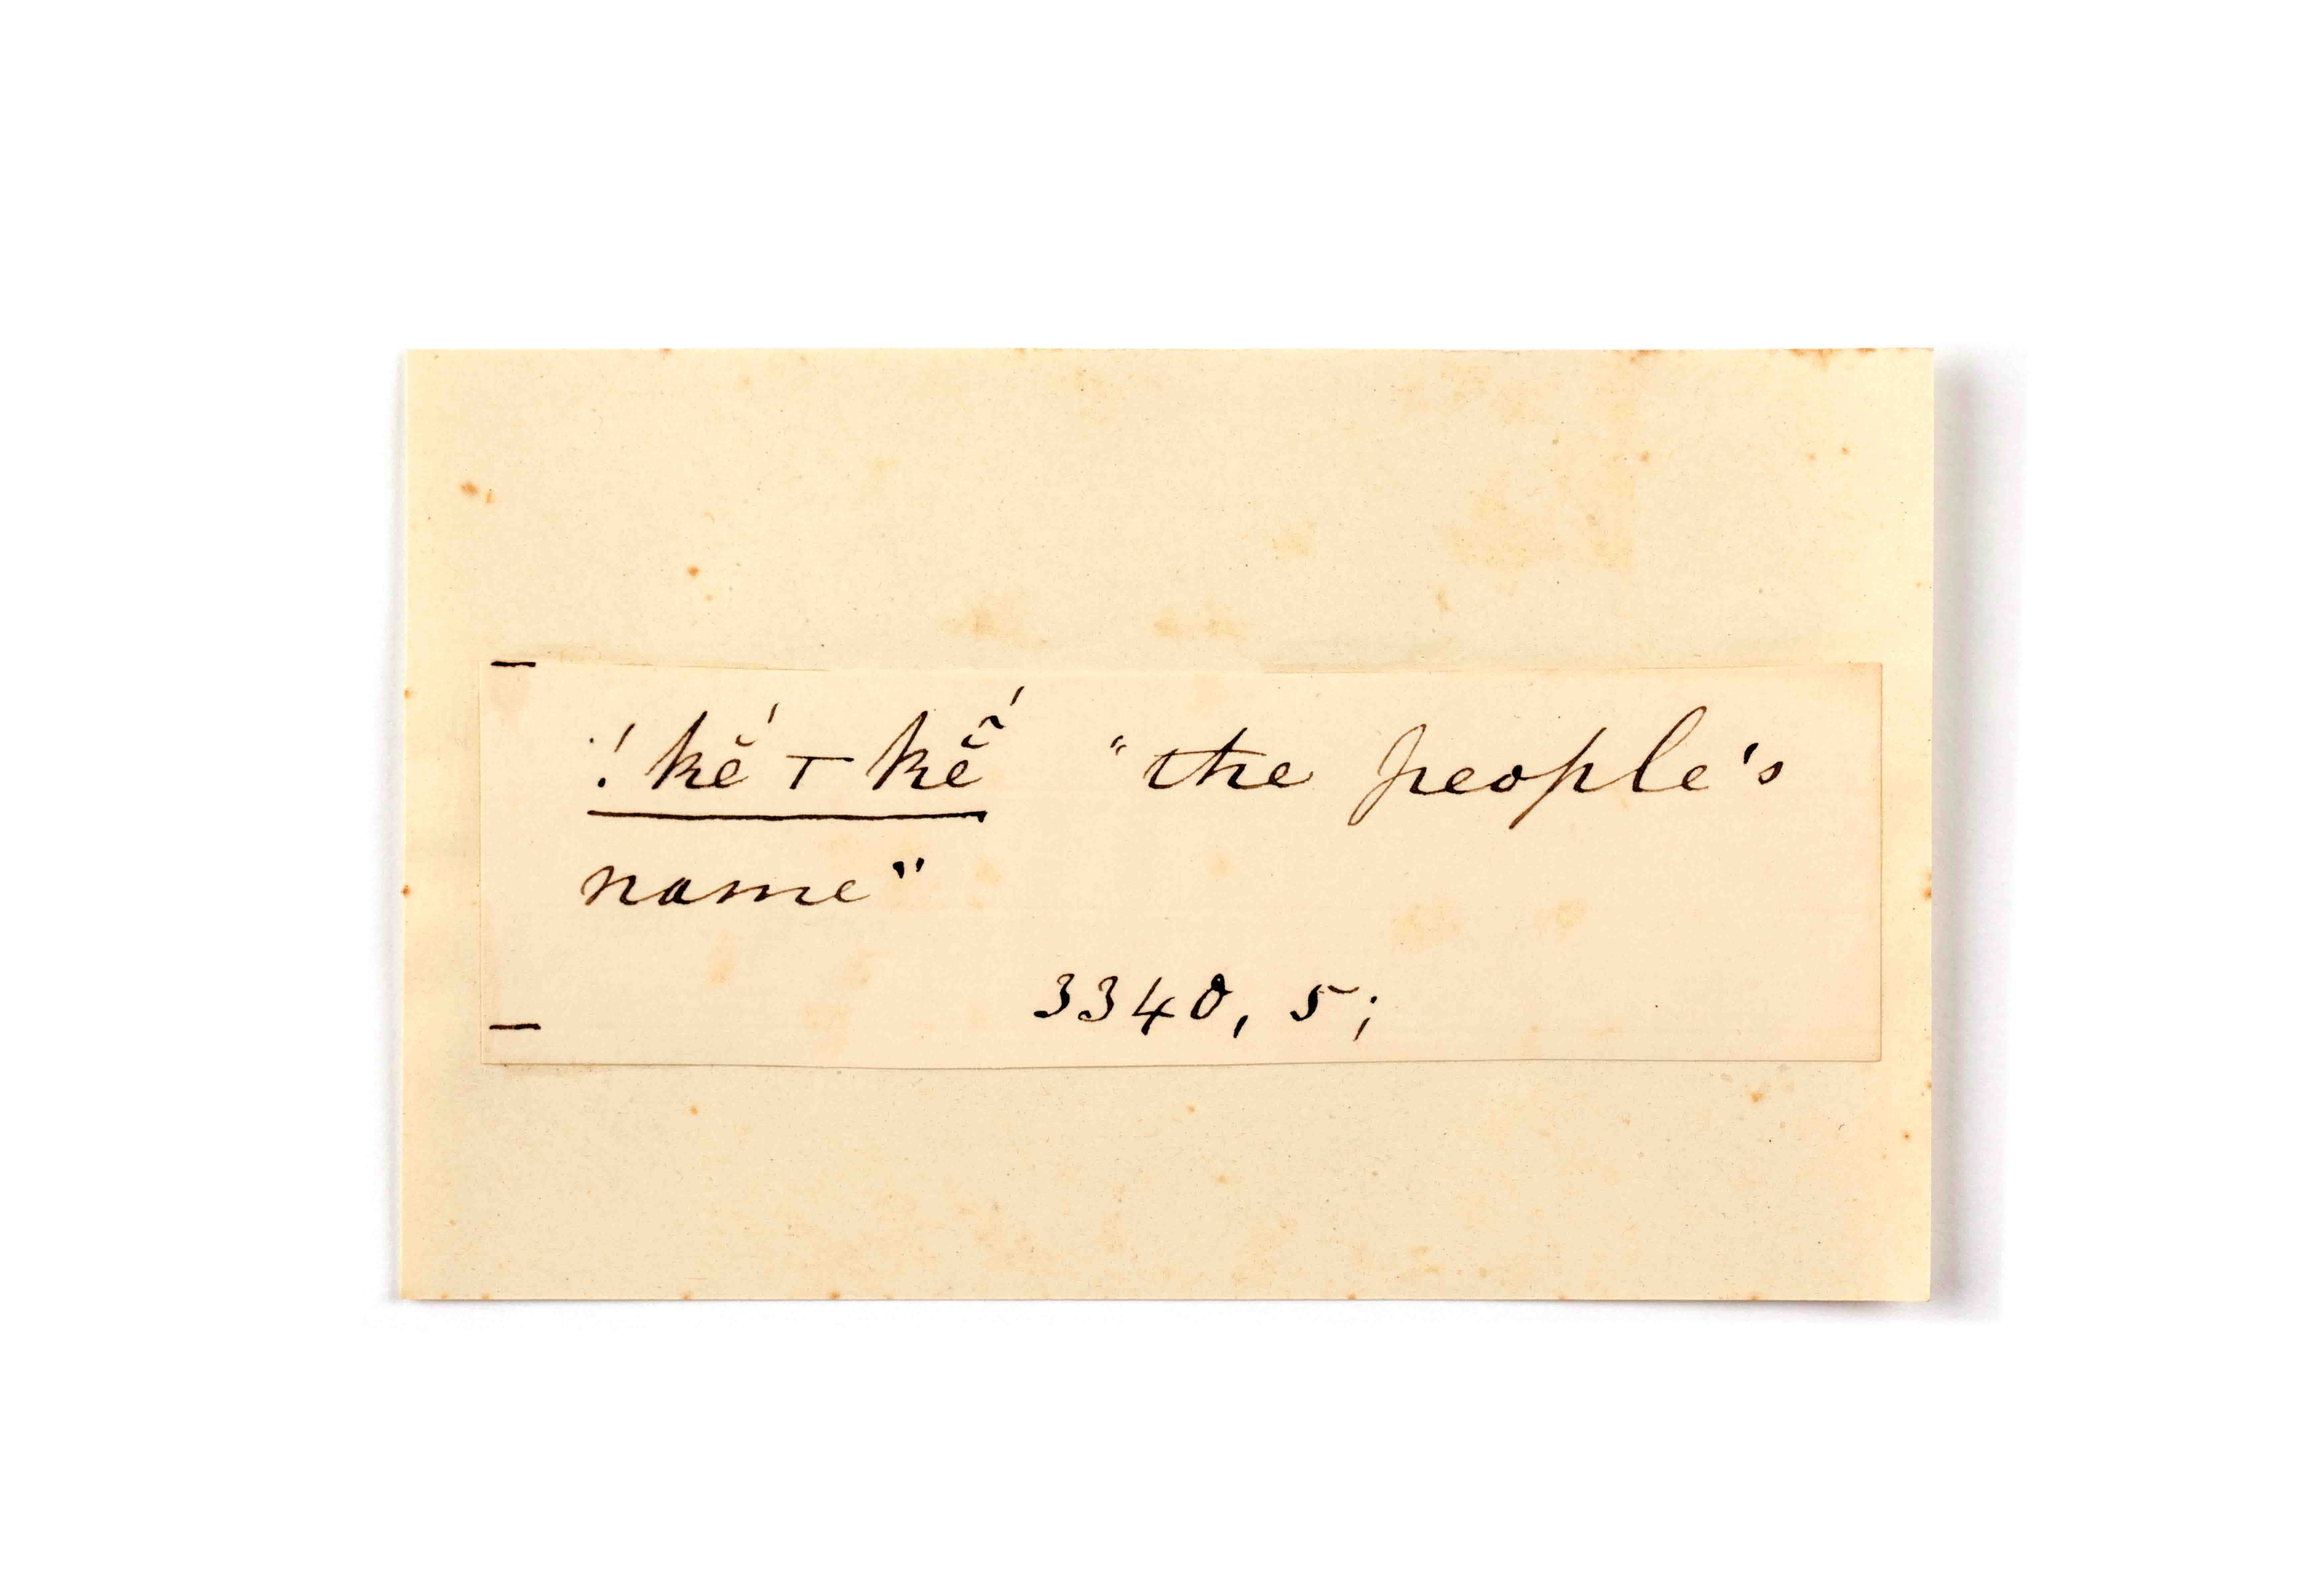 !kĕ́ ⊤ kĕ̃́ "the people's
name"
3340, 5;